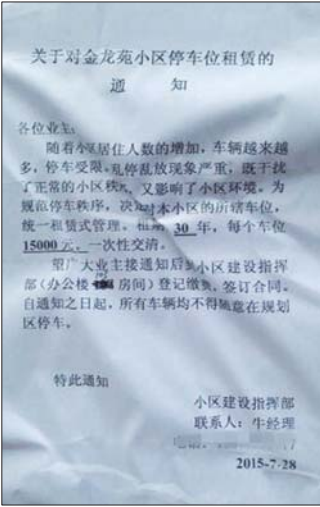 关于对金龙苑小区停车位租赁的
通 知
各位业主:
随着小区居住人数的增加，车辆越来越
多，停车受限，乱停乱放现象严重，既干扰
了正常的小区秩，又影响了小区环境。为
规范停车秩序，决定对本小区的所辖车位，
统一租赁式管理。租期 30 年，每个车位
15000 元，一次性交清。
望广大业主接通知后到小区建设指挥
部（办公楼 房间）登记缴，签订合同。
自通知之日起，所有车辆均不得随意在规划
区停车。
特此通知
小区建设指挥部
联系人：牛经理
2015-7-28